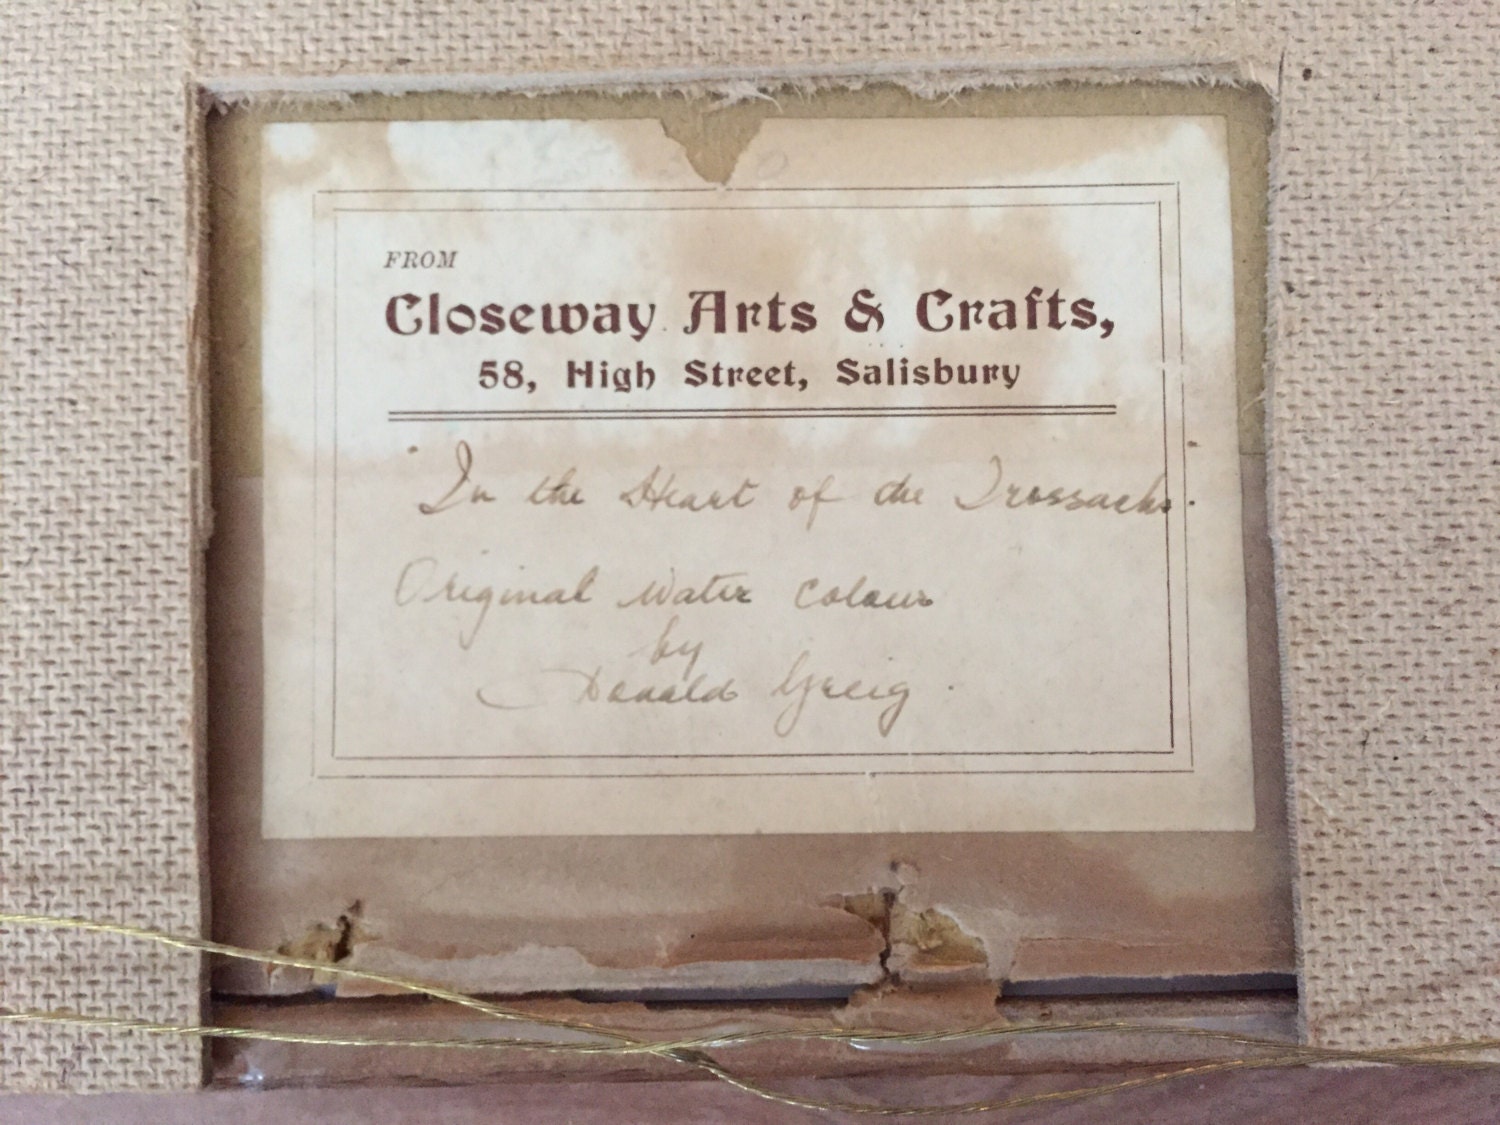 FROM
Closeway Arts & Crafts,
58, High Street, Salisbury
"In the Heart of the Trossachs".
Original Water Colour
by
Donald Greig.